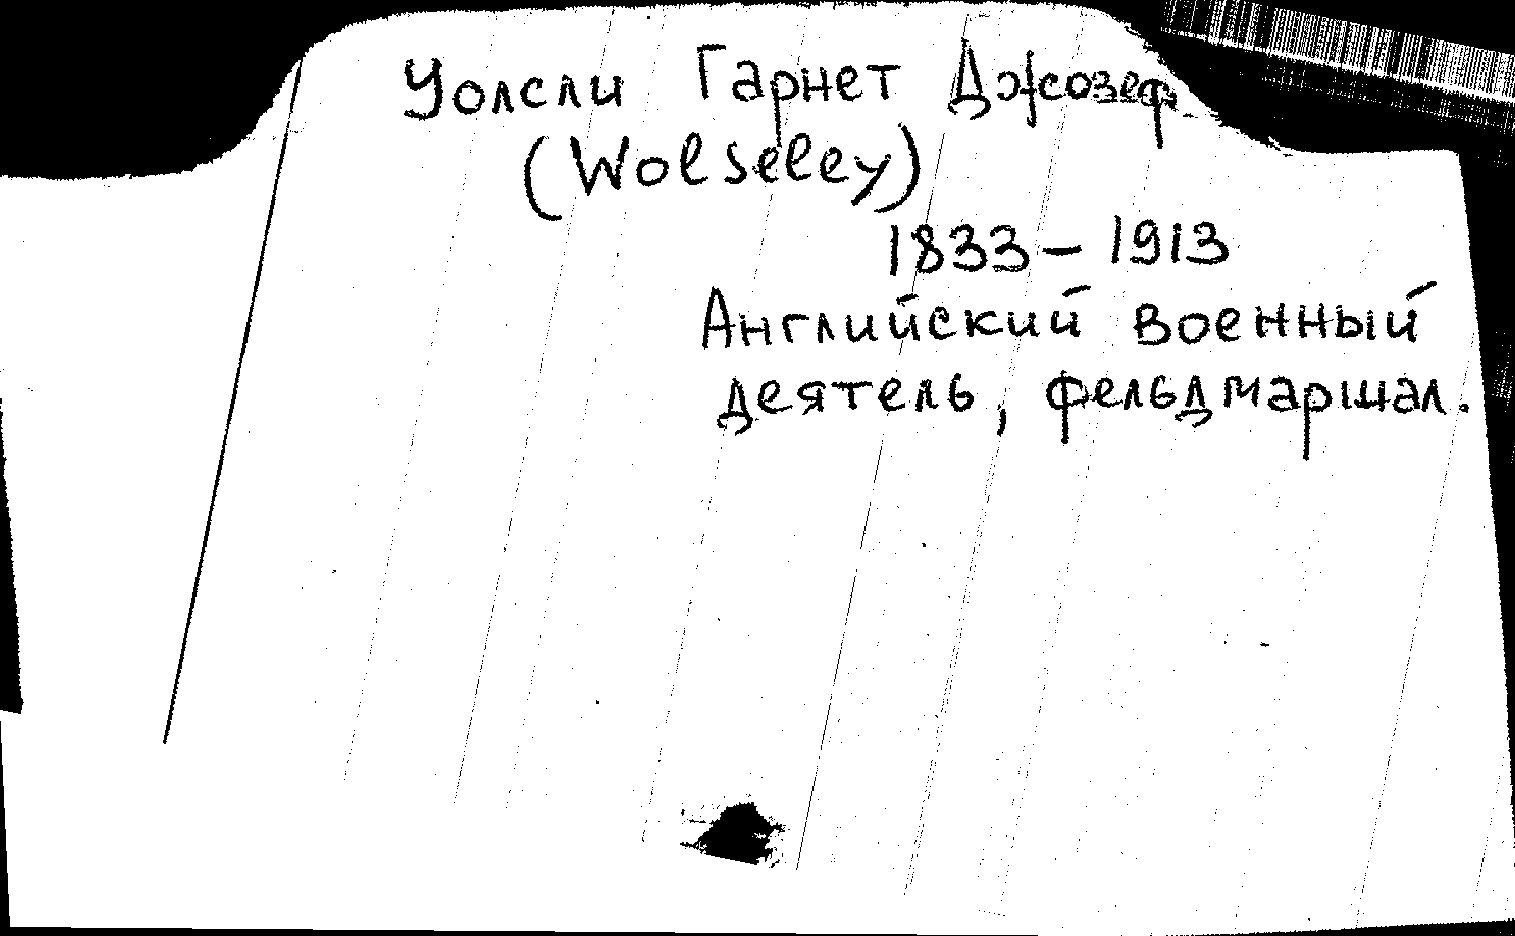 Уолсли Гарнет Джозеф
(Wolseley)
1833 – 1913
Английский военный
деятель, фельдмаршал.